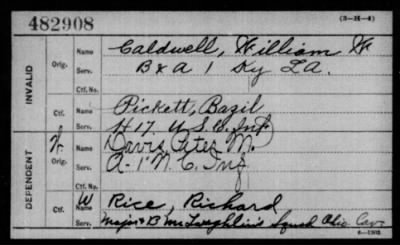 482908 (3-H-4)
INVALID Orig. Name Caldwell, William W
Serv. B & A 1 Ky L A.
Ctf. No.
Ctf. Name Pickett, Bazil
Serv. H 17. U.S.C. Inf
DEPENDENT Orig. Name Davis, Peter M.
Serv. A-1" N.C. Inf
Ctf. No.
Ctf. W Name Rice, Richard
Serv. Major & B McLaughlin's Squad Ohio Cav